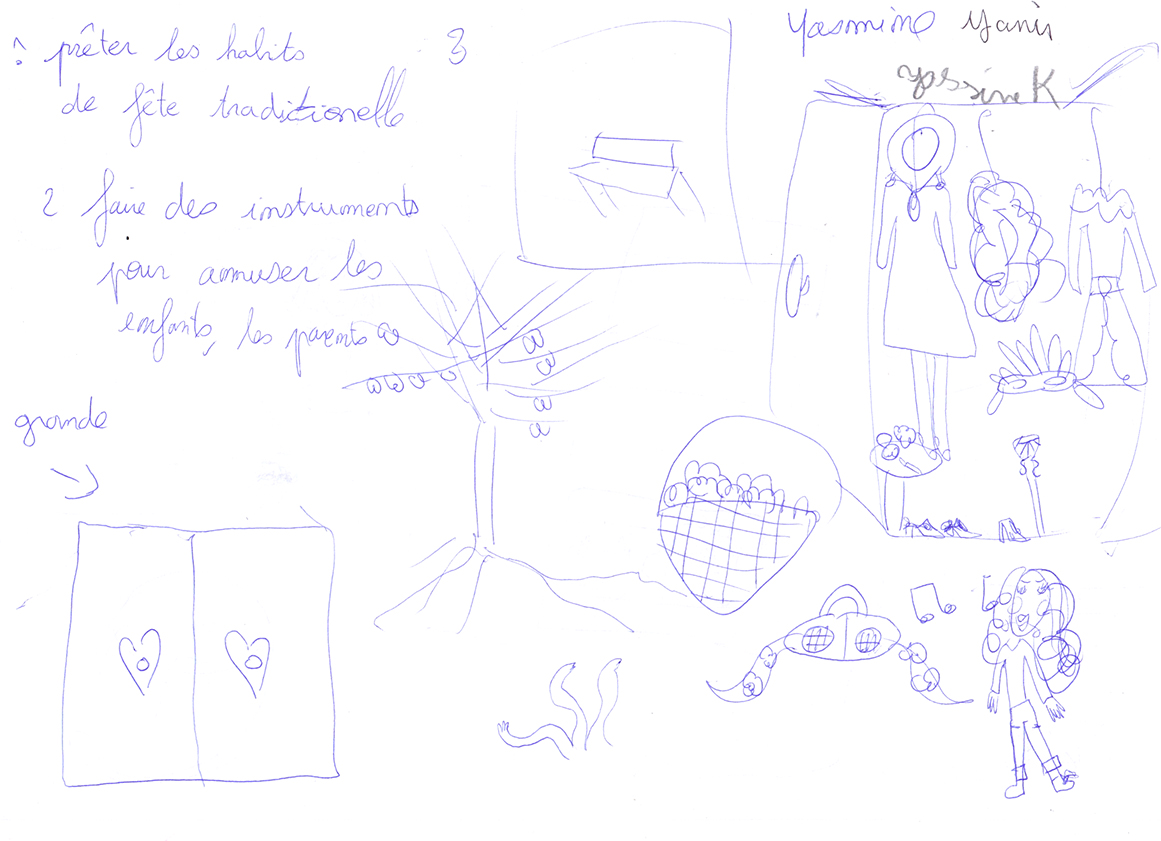 Yasmine Yanis
Yassine K
1 prêter les habits
de fête traditionelle
2 faire des instruments
pour ammuser les
enfants, les parents
grande
3